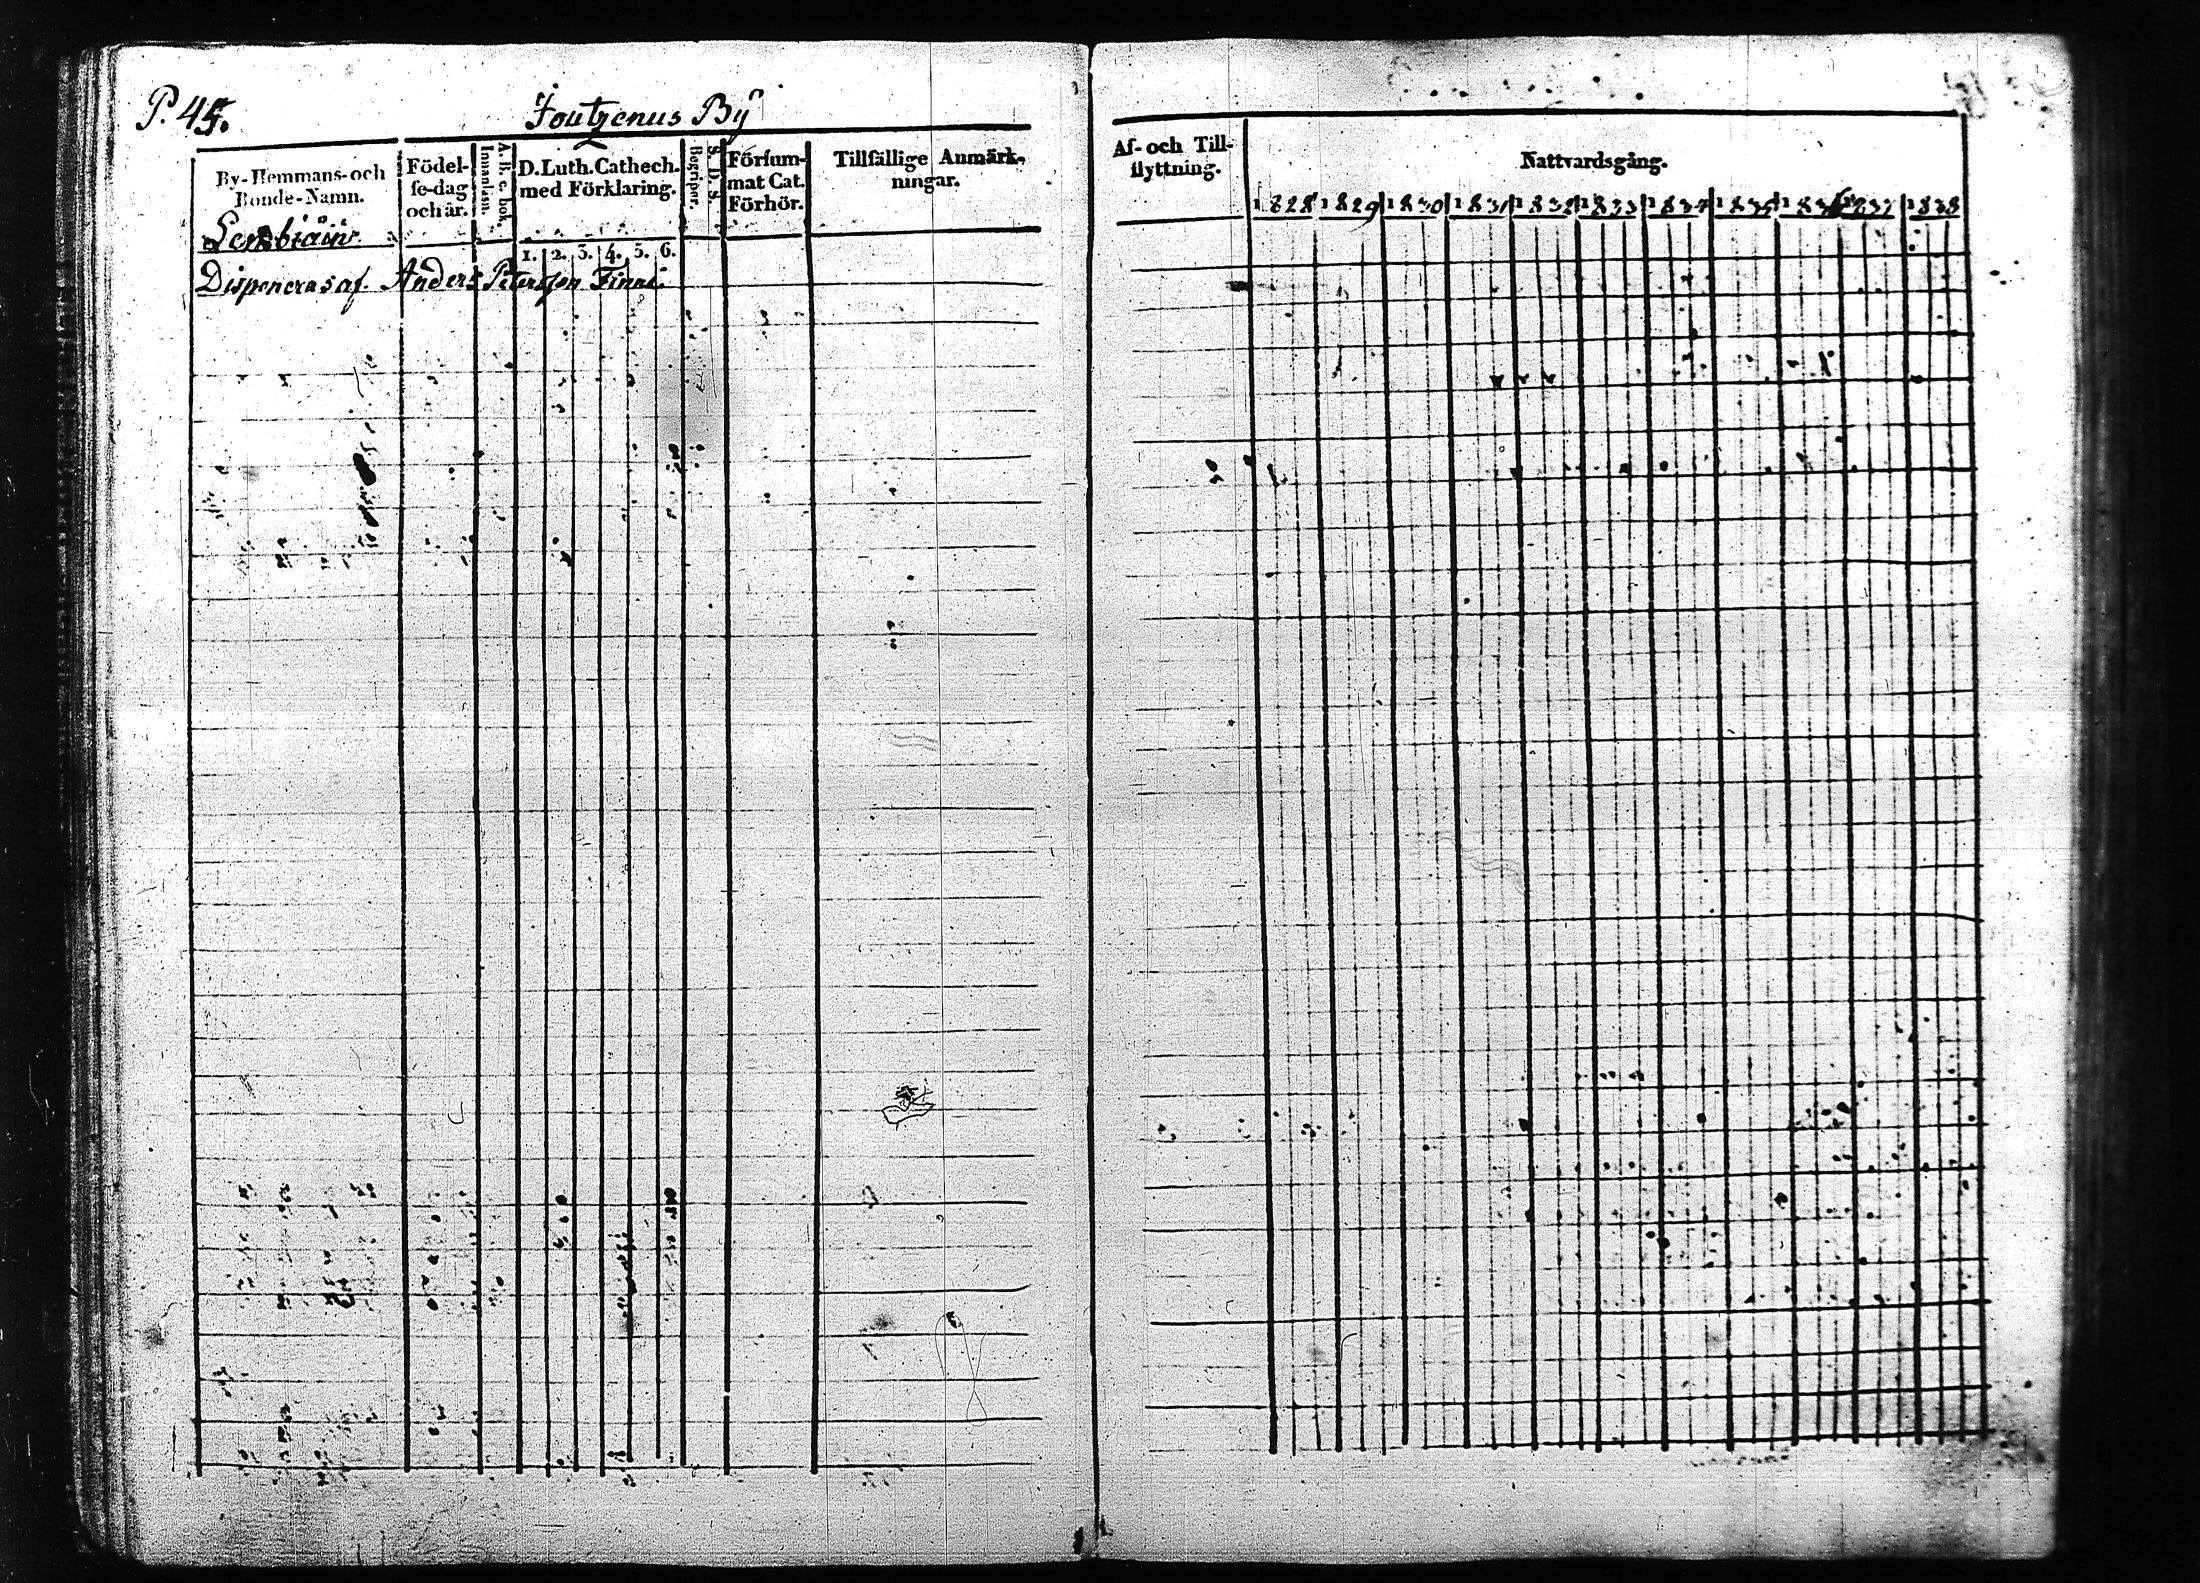 P. 45.
Joutzenus Bÿ
By-Hemmans- och Bonde-Namn.
Födelse-dag och år.
A. B. c bok.
Innanläsn.
D. Luth. Cathech. med Förklaring.
1. 2. 3. 4. 5. 6.
Begriper.
S. D. S.
Försummat Cat. Förhör.
Tillfällige Anmärkningar.
Disponeras af. Anders Petersson Finne.
Af- och Tillflyttning.
Nattvardsgång.
1828 1829 1830 1831 1832 1833 1834 1835 1836 1837 1838